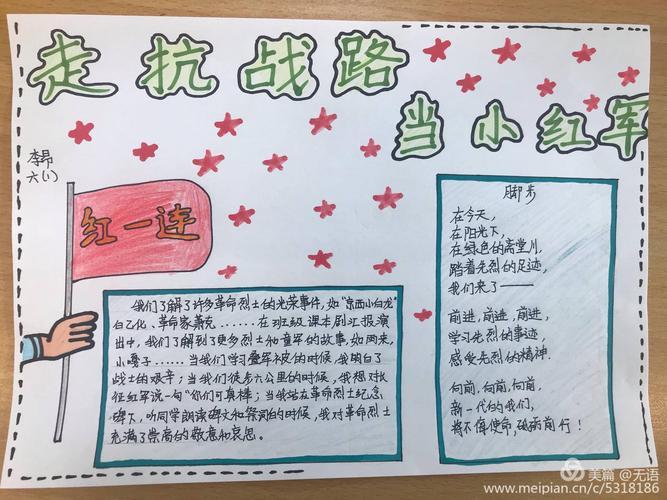 走抗战路
当小红军
李昂
六(1)
红一连
我们了解了许多革命烈士的光荣事件,如"京西小白龙"
白乙化、革命家萧克……在班级课本剧汇报演
出中,我们了解到了更多烈士和童军的故事,如雨来,
小嘎子……当我们学习叠军被的时候,我明白了
战士的艰辛;当我们徒步六公里的时候,我想对长
征红军说一句"你们可真棒;当我站在革命烈士纪念
碑下,听同学朗读碑文和祭词的时候,我对革命烈士
充满了崇高的敬意和哀思。
脚步
在今天,
在阳光下,
在绿色的高堂川,
踏着先烈的足迹,
我们来了——
前进,前进,前进,
学习先烈的事迹,
感受先烈的精神.
向前,向前,向前,
新一代的我们,
将不辱使命,砥砺前行!
美篇 @无语
www.meipian.cn/c/5318186